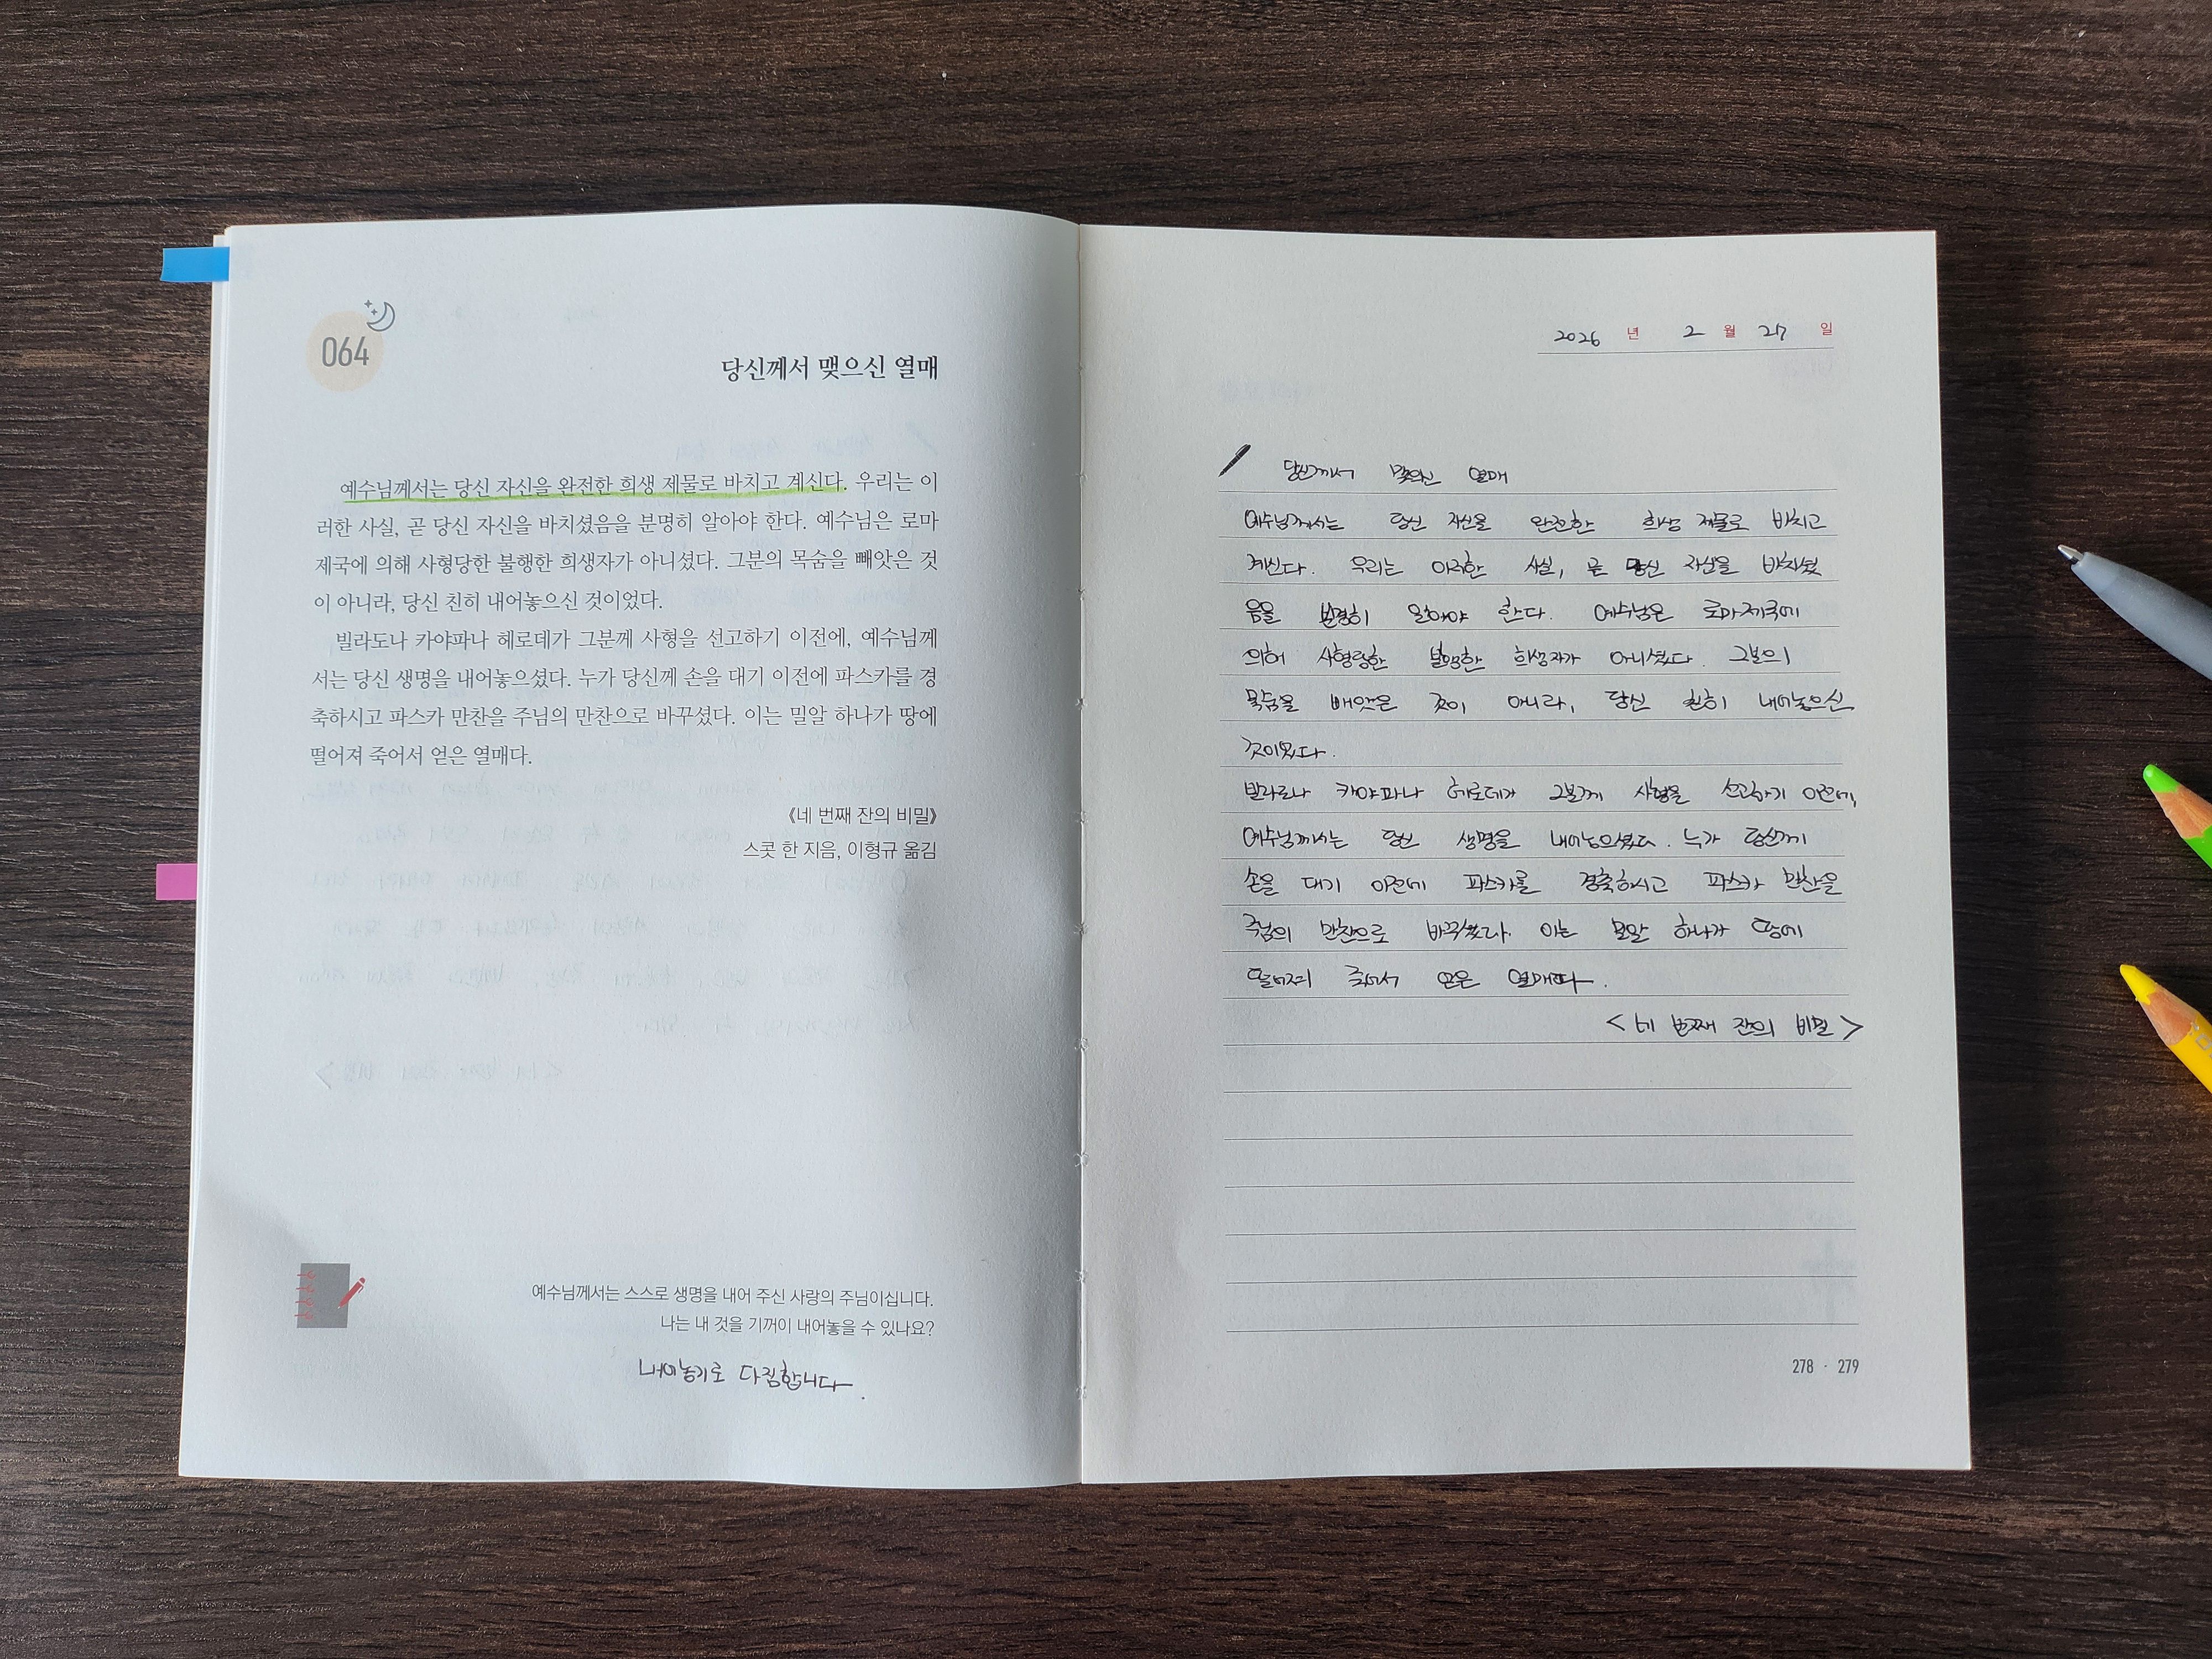 064
당신께서 맺으신 열매
예수님께서는 당신 자신을 완전한 희생 제물로 바치고 계신다. 우리는 이
러한 사실, 곧 당신 자신을 바치셨음을 분명히 알아야 한다. 예수님은 로마
제국에 의해 사형당한 불행한 희생자가 아니셨다. 그분의 목숨을 빼앗은 것
이 아니라, 당신 친히 내어놓으신 것이었다.
빌라도나 카야파나 헤로데가 그분께 사형을 선고하기 이전에, 예수님께
서는 당신 생명을 내어놓으셨다. 누가 당신께 손을 대기 이전에 파스카를 경
축하시고 파스카 만찬을 주님의 만찬으로 바꾸셨다. 이는 밀알 하나가 땅에
떨어져 죽어서 얻은 열매다.
《네 번째 잔의 비밀》
스콧 한 지음, 이형규 옮김
예수님께서는 스스로 생명을 내어 주신 사랑의 주님이십니다.
나는 내 것을 기꺼이 내어놓을 수 있나요?
내어놓기로 다짐합니다.
2026 년 2 월 27 일
당신께서 맺으신 열매
예수님께서는 당신 자신을 완전한 희생 제물로 바치고
계신다. 우리는 이러한 사실, 곧 당신 자신을 바치셨
음을 분명히 알아야 한다. 예수님은 로마제국에
의해 사형당한 불행한 희생자가 아니셨다. 그분의
목숨을 빼앗은 것이 아니라, 당신 친히 내어놓으신
것이었다.
빌라도나 카야파나 헤로데가 그분께 사형을 선고하기 이전에,
예수님께서는 당신 생명을 내어놓으셨다. 누가 당신께
손을 대기 이전에 파스카를 경축하시고 파스카 만찬을
주님의 만찬으로 바꾸셨다. 이는 밀알 하나가 땅에
떨어져 죽어서 얻은 열매다.
<네 번째 잔의 비밀>
278 · 279